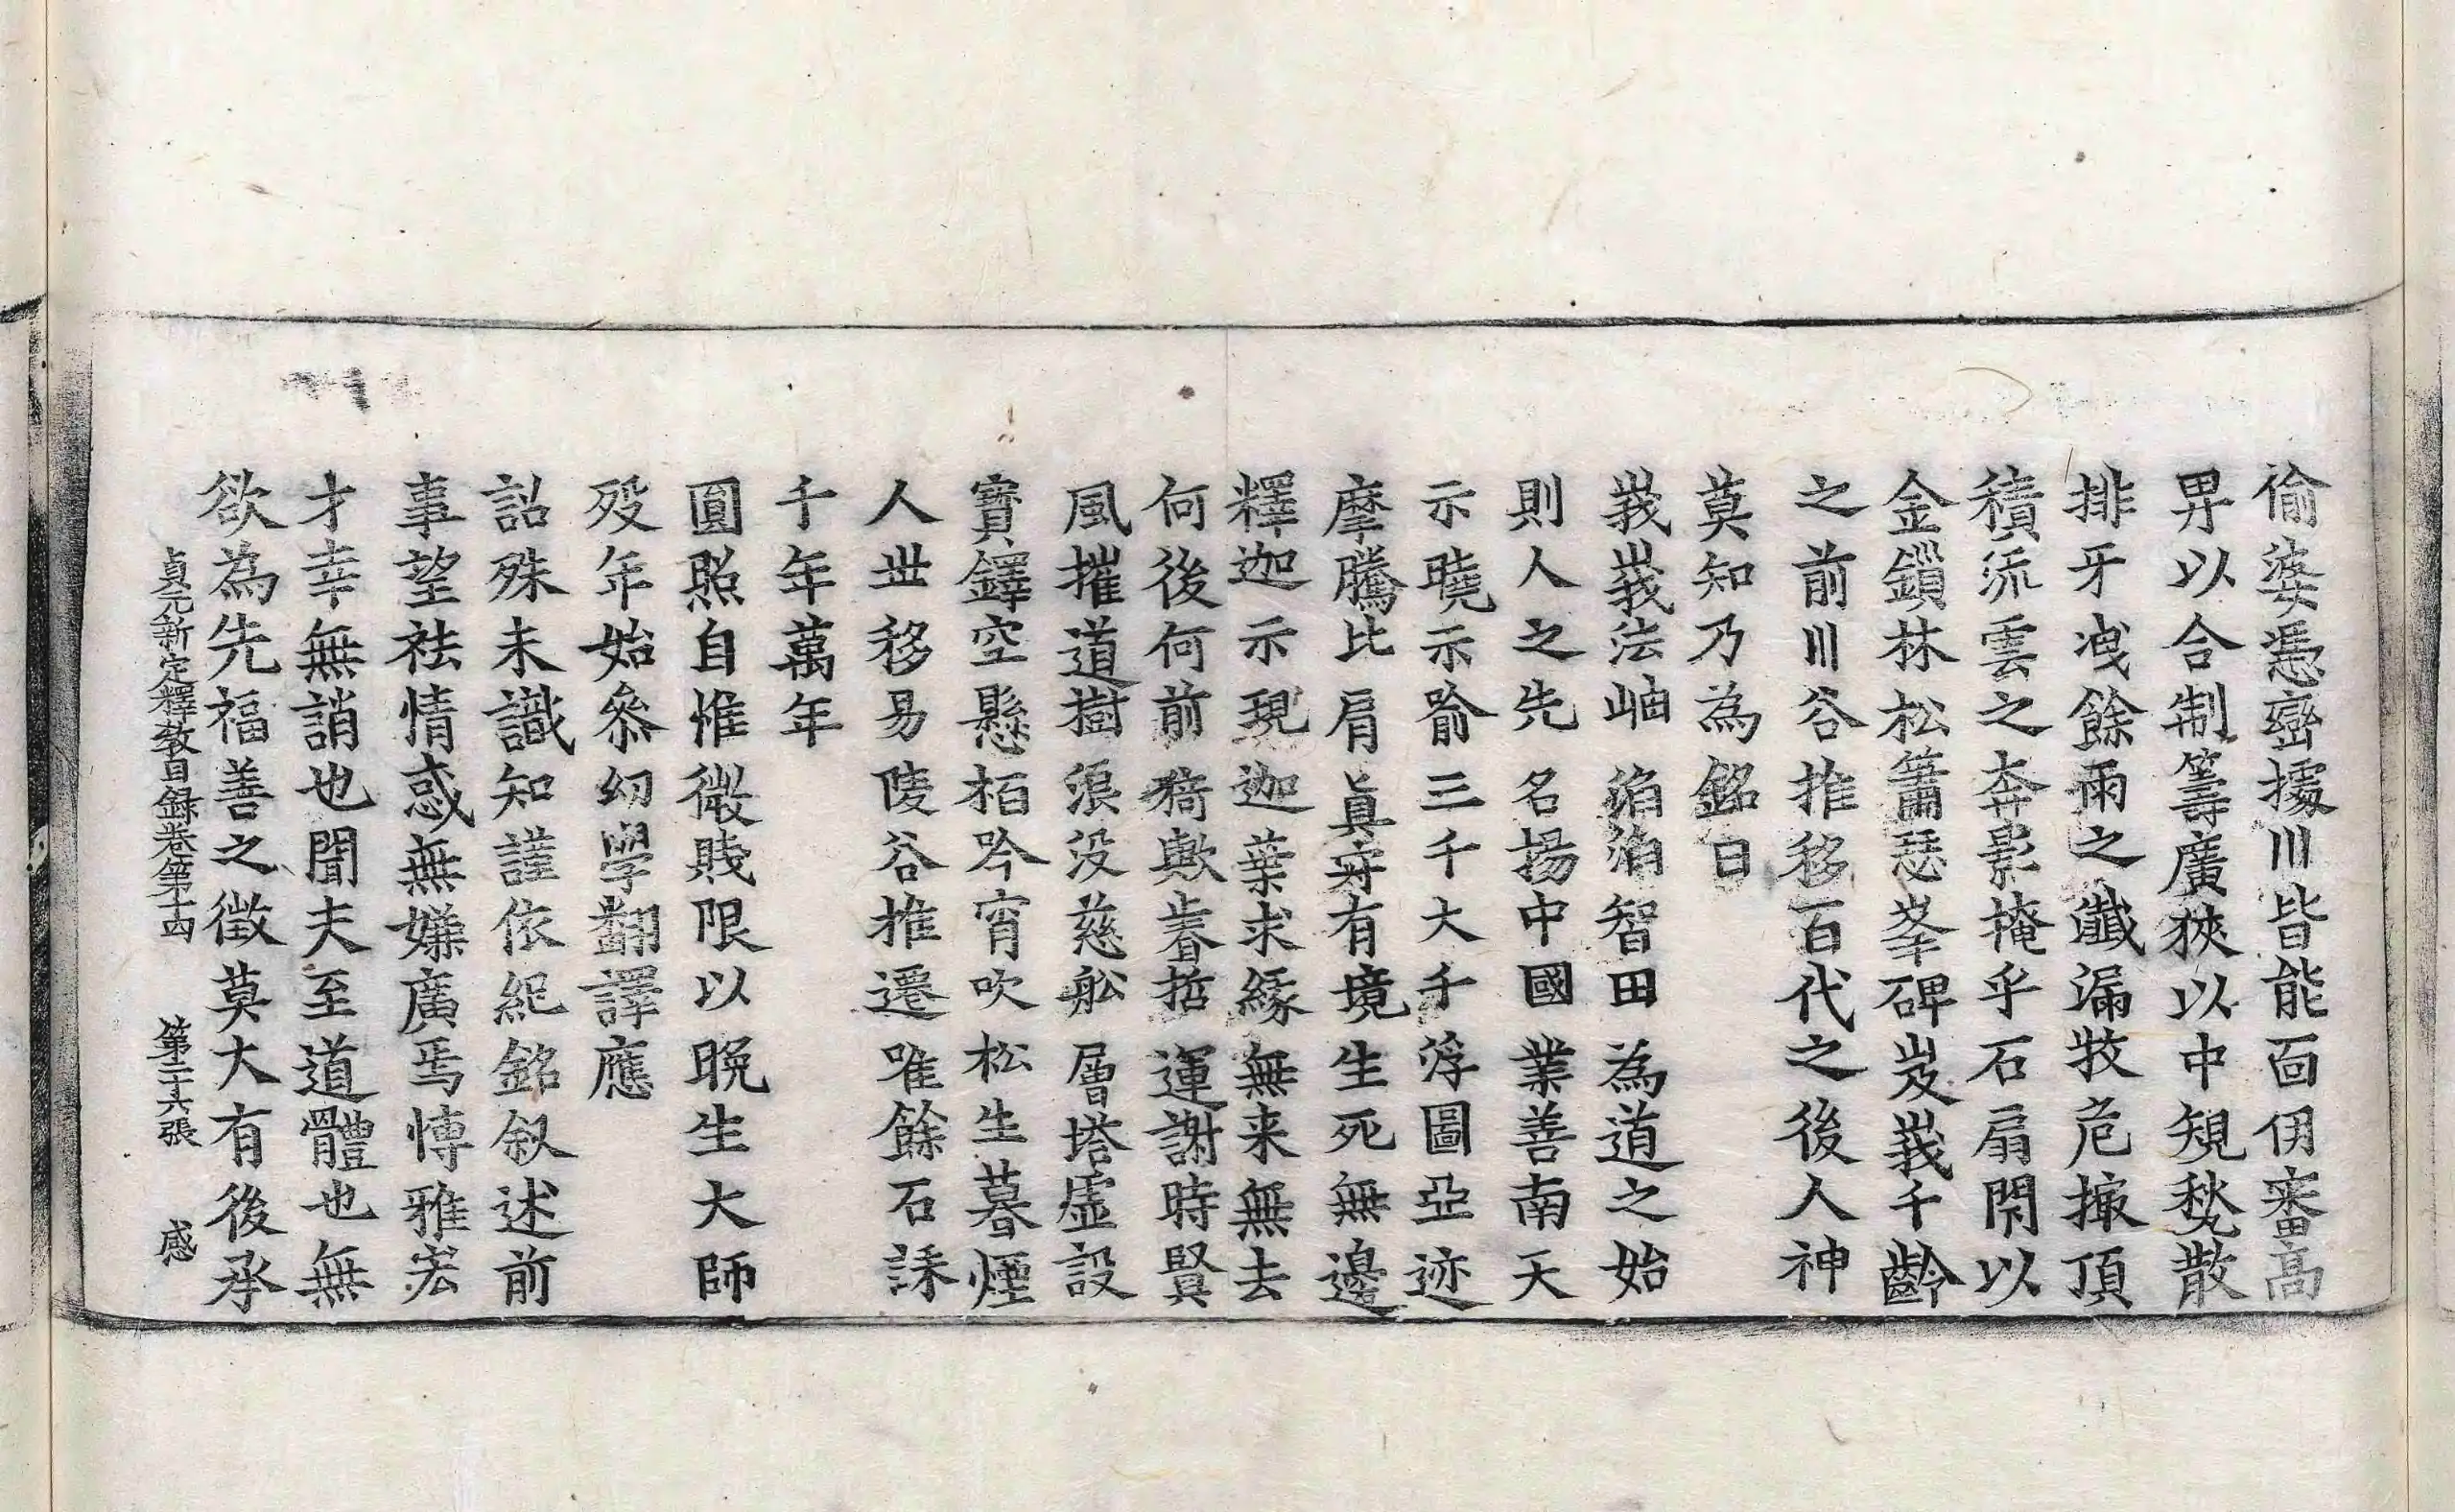 偷婆憑巒據川皆能面伊審高
畀以合制籌廣狹以中規愁散
排牙洩餘雨之巇漏牧危撖頂
積流雲之奔影掩乎石扇閇以
金鎻林松簫瑟峯碑岌峩千齡
之前川谷推移百代之後人神
莫知乃為銘曰
峩峩法岫滔滔智田為道之始
則人之先名揚中國業善南天
示曉示喻三千大千浮圖亞迹
摩騰比肩真寂有境生死無邊
釋迦示現迦葉求緣無来無去
何後何前猗歟耆哲運謝時賢
風摧道樹浪没慈舩層塔虛設
寶鐸空懸栢吟宵吹松生暮煙
人丗移易陵谷推遷唯餘石誄
千年萬年
圓照自惟微賤限以晩生大師
歿年始叅幼學翻譯應
詔殊未識知謹依紀銘叙述前
事望祛情惑無嫌廣焉愽雅宏
才幸無誚也聞夫至道體也無
欲為先福善之徴莫大有後承
貞元新定釋教目録卷第十四 第二十六張 感